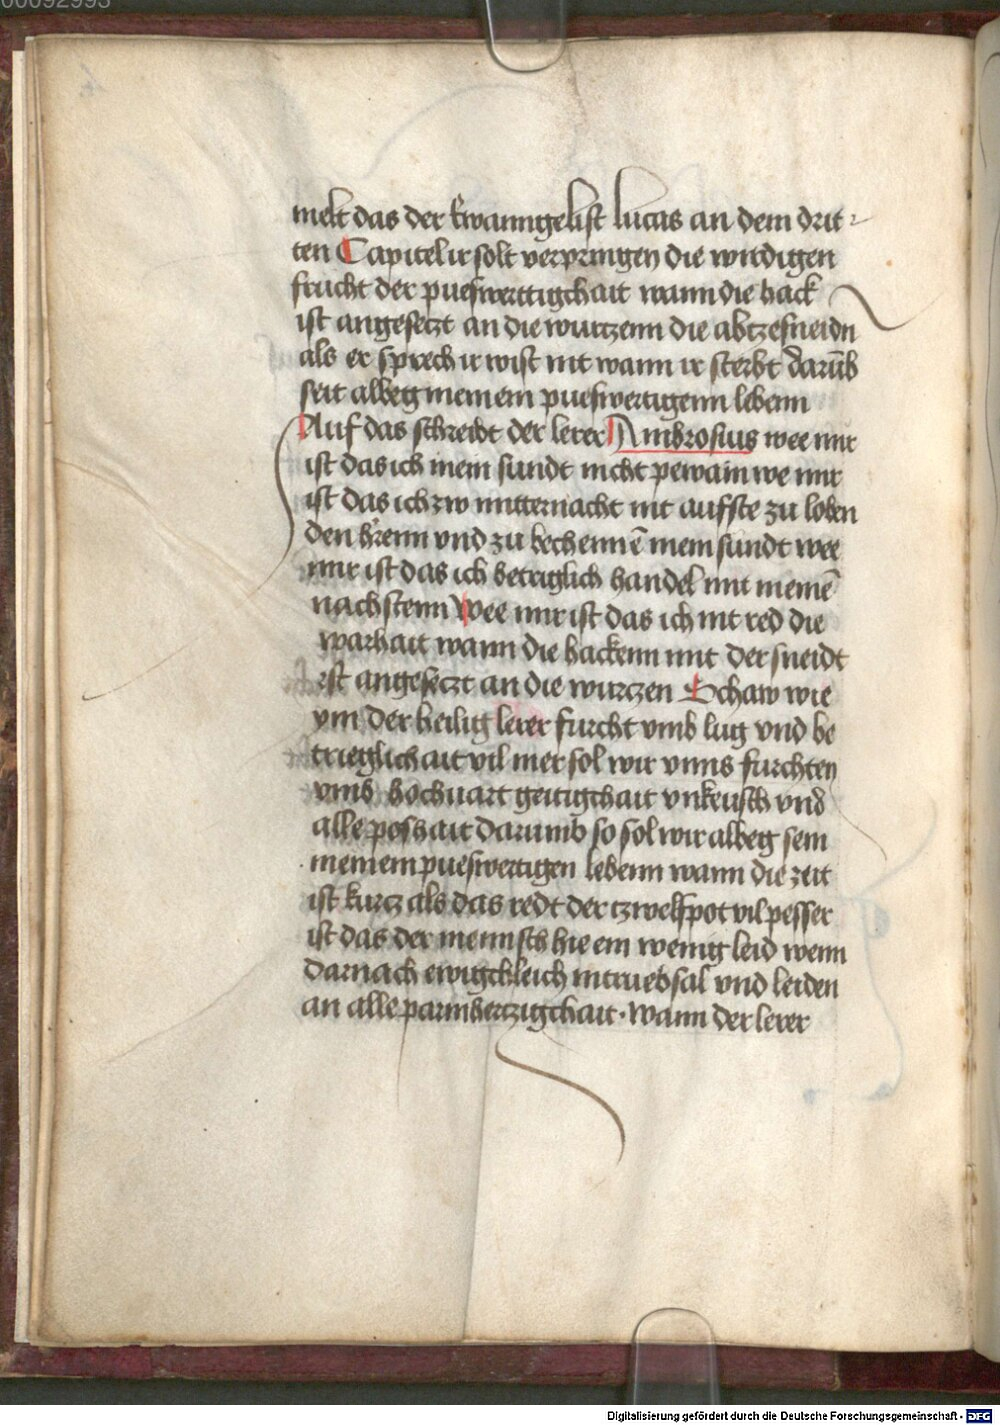 00092993
melt das der Ewanngelist lucas an dem drit-
ten Capitel ir solt verpringen die wirdigen
frucht der pueswerttigchait wann die hack
ist angeseczt an die wurtzenn die abtzesneidn
als er sprech ir wist nit wann ir sterbt darūb
seit albeg in einem pueswertigenn lebenn
Auf das schreibt der lerer Ambrosius wee mir
ist das ich mein sundt nicht pewain we mir
ist das ich zw mitternacht nit aufste zu loben
den hrenn vnd zu bechennē mein sundt wee
mir ist das ich betriglich handel mit meinē
nachstenn Wee mir ist das ich nit red die
warhait wann die hackenn mit der sneidt
ist angeseczt an die wurczen Schaw wie
ym der heilig lerer furcht vmb lug vnd be
trieglichait vil mer sol wir vnns furchten
vmb hochuart geitigchait vnkeusch vnd
alle poshait darumb so sol wir albeg sein
in einem pueswertigen lebenn wann die zeit
ist kurcz als das redt der tzwelfpot vil pesser
ist das der mennsch hie ein wenig leid wenn
darnach ewigckleich in truebsal vnd leiden
an alle parmhertzigchait · wann der lerer
Digitalisierung gefördert durch die Deutsche Forschungsgemeinschaft - DFG